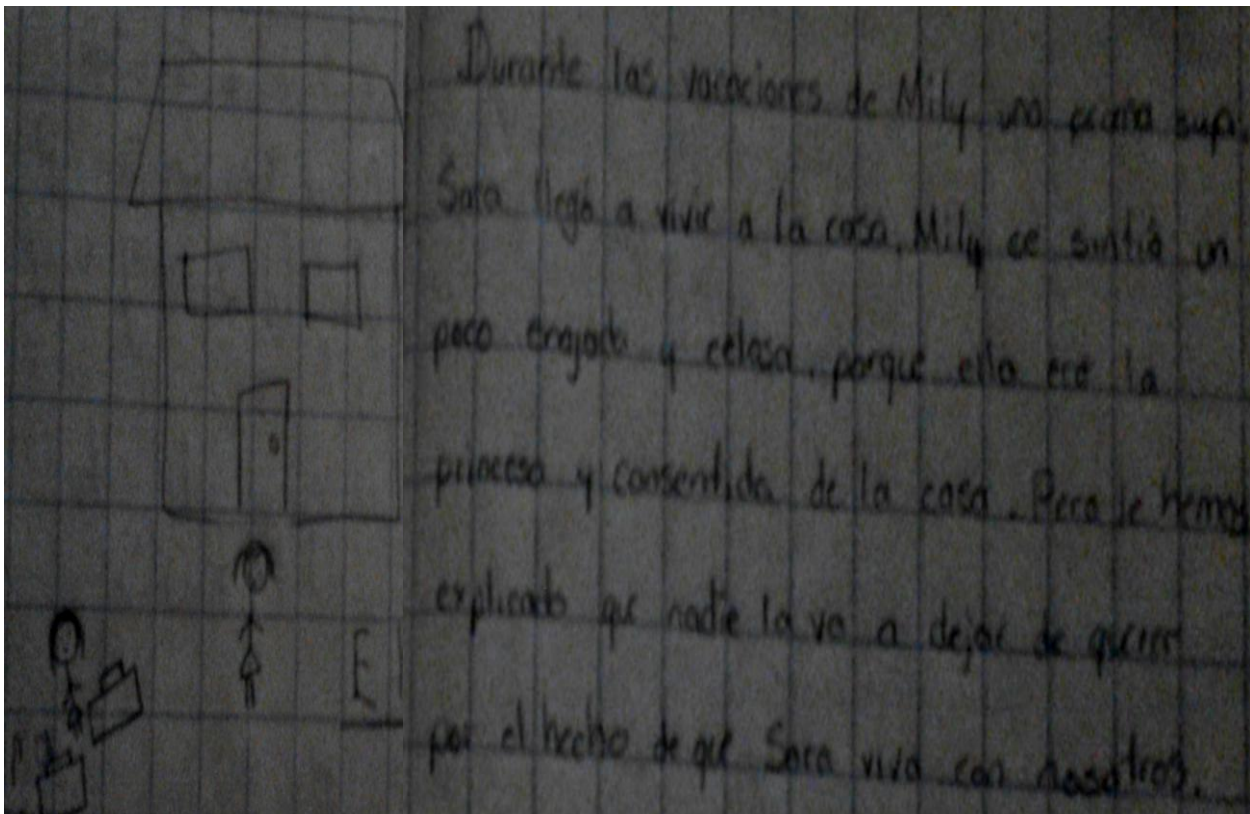 Durante las vacaciones de Mily, una prima
Sara llegó a vivir a la casa. Mily se sintió un
poco enojada y celosa, porque ella era la
princesa y consentida de la casa. Pero le hemos
explicado que nadie la va a dejar de querer
por el hecho de que Sara viva con nosotros.
E